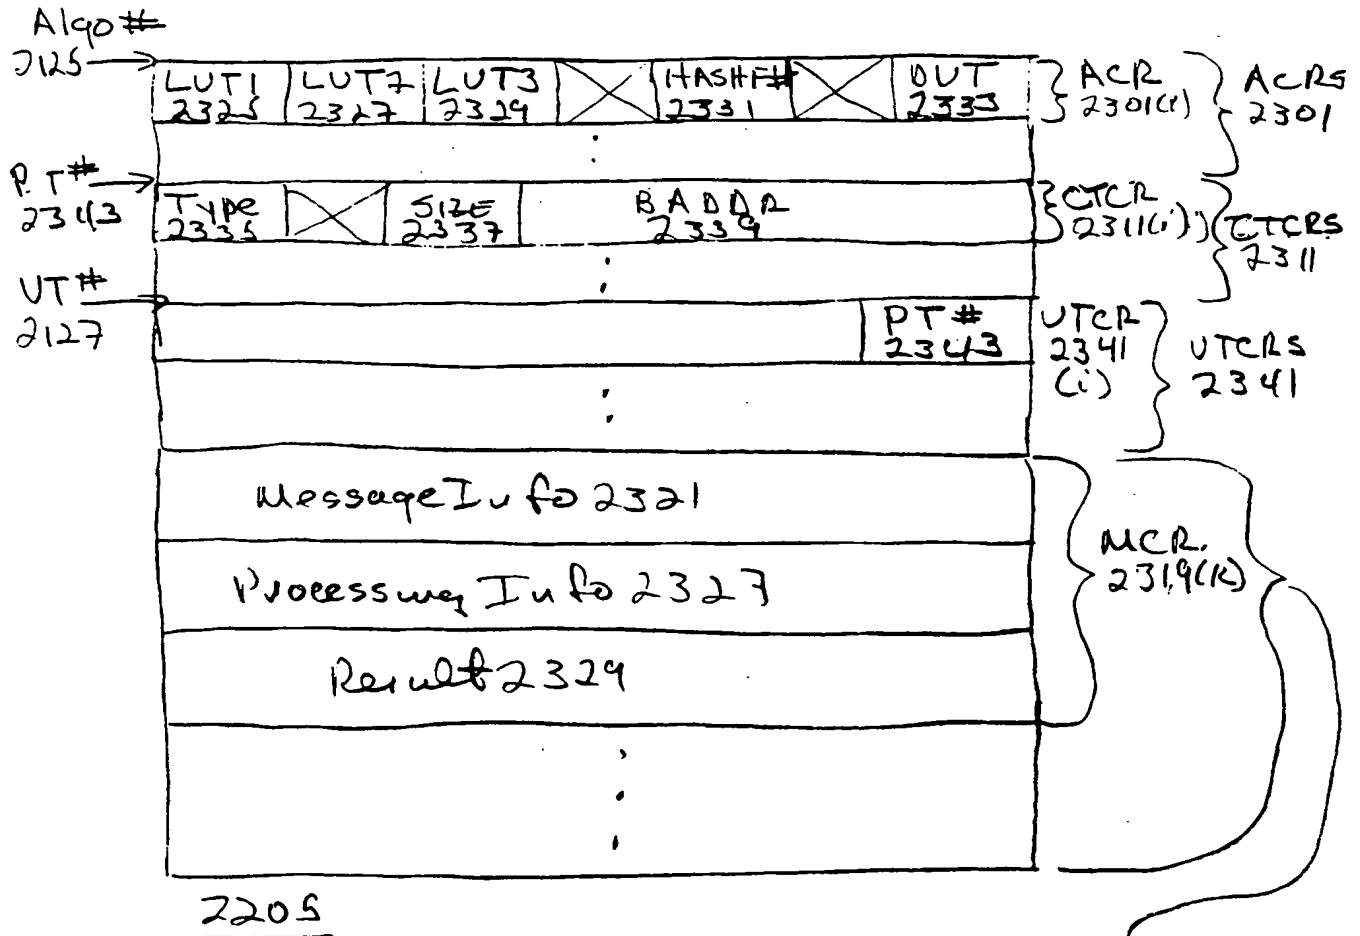 Algo #
2125
LUT1 2325
LUT2 2327
LUT3 2329
HASHF# 2331
DUT 2333
ACR 2301(i)
ACRS 2301
PT# 2343
Type 2335
SIZE 2337
BADDR 2339
CTCR 2311(i)
CTCRS 2311
VT# 2127
PT# 2343
VTCR 2341 (i)
VTCRS 2341
Message Info 2321
Processing Info 2327
Result 2329
MCR 2319(k)
2205